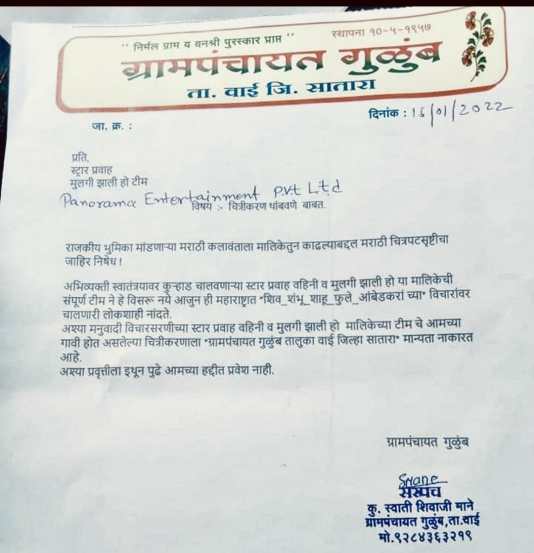 स्थापना १०-५-१९५७
'' निर्मल ग्राम व वनश्री पुरस्कार प्राप्त ''
ग्रामपंचायत गुळुंब
ता. वाई जि. सातारा
जा. क्र. :
दिनांक : 16/01/2022
प्रति,
स्ट्रार प्रवाह
मुलगी झाली हो टीम
Panorama Entertainment Pvt Ltd
विषय :- चित्रीकरण थांबवणे बाबत.
राजकीय भुमिका मांडणाऱ्या मराठी कलावंताला मालिकेतुन काढल्याबद्दल मराठी चित्रपटसृष्टीचा
जाहिर निषेध !
अभिव्यक्ती स्वातंत्रयावर कुऱ्हाड चालवणाऱ्या स्टार प्रवाह वहिनी व मुलगी झाली हो या मालिकेची
संपूर्ण टीम ने हे विसरू नये आजुन ही महाराष्ट्रात "शिव_शंभू_शाहू_फुले_आंबेडकरां च्या" विचारांवर
चालणारी लोकशाही नांदते.
अश्या मनुवादी विचारसरणीच्या स्टार प्रवाह वहिनी व मुलगी झाली हो मालिकेच्या टीम चे आमच्या
गावी होत असलेल्या चित्रीकरणाला "ग्रामपंचायत गुळुंब तालुका वाई जिल्हा सातारा" मान्यता नाकारत
आहे.
अश्या प्रवृत्तीला इथून पुढे आमच्या हद्दीत प्रवेश नाही.
ग्रामपंचायत गुळुंब
सरपंच
कु. स्वाती शिवाजी माने
ग्रामपंचायत गुळुंब,ता.वाई
मो.९२८४३६३२१९